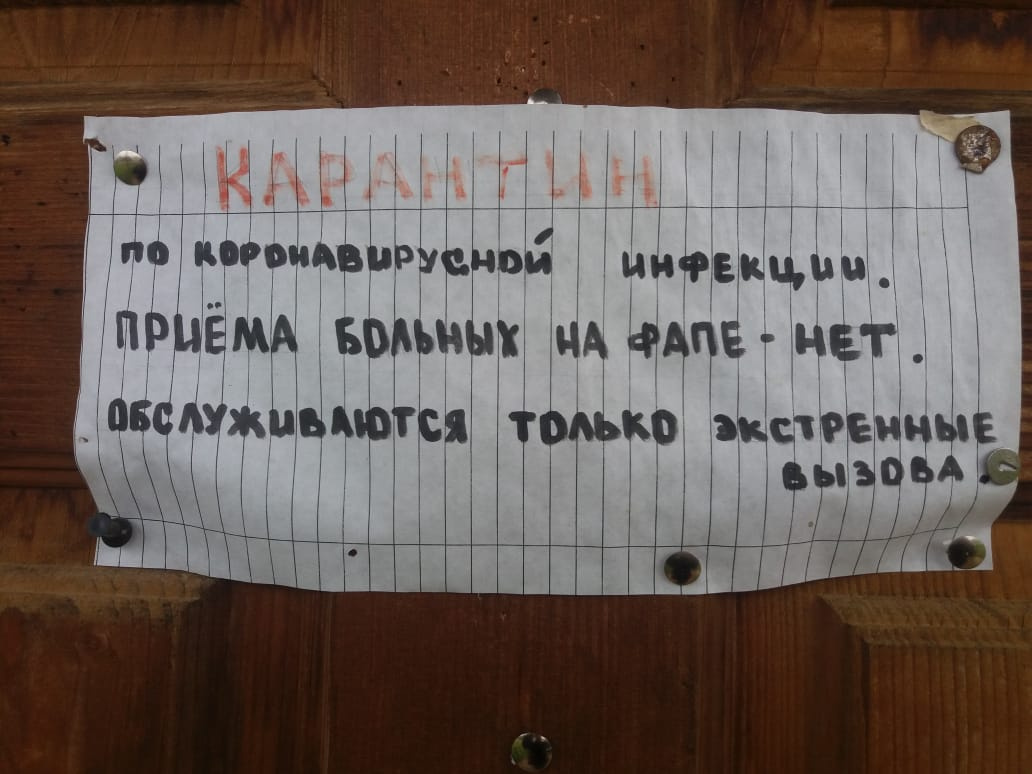 КАРАНТИН
ПО КОРОНАВИРУСНОЙ ИНФЕКЦИИ.
ПРИЁМА БОЛЬНЫХ НА ФАПЕ - НЕТ.
ОБСЛУЖИВАЮТСЯ ТОЛЬКО ЭКСТРЕННЫЕ
ВЫЗОВА.